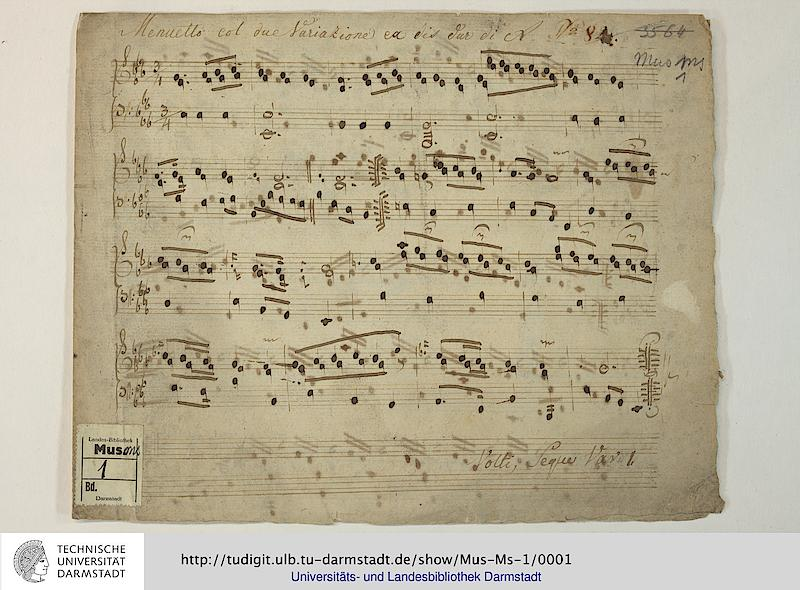 Menuetto col due Variazione ex dis dur di N. No 8
3564
Mus ms
1
Volti, Seque Var 1.
Landes-Bibliothek
Mus ms
1
Bd.
Darmstadt
TECHNISCHE
UNIVERSITÄT
DARMSTADT
http://tudigit.ulb.tu-darmstadt.de/show/Mus-Ms-1/0001
Universitäts- und Landesbibliothek Darmstadt